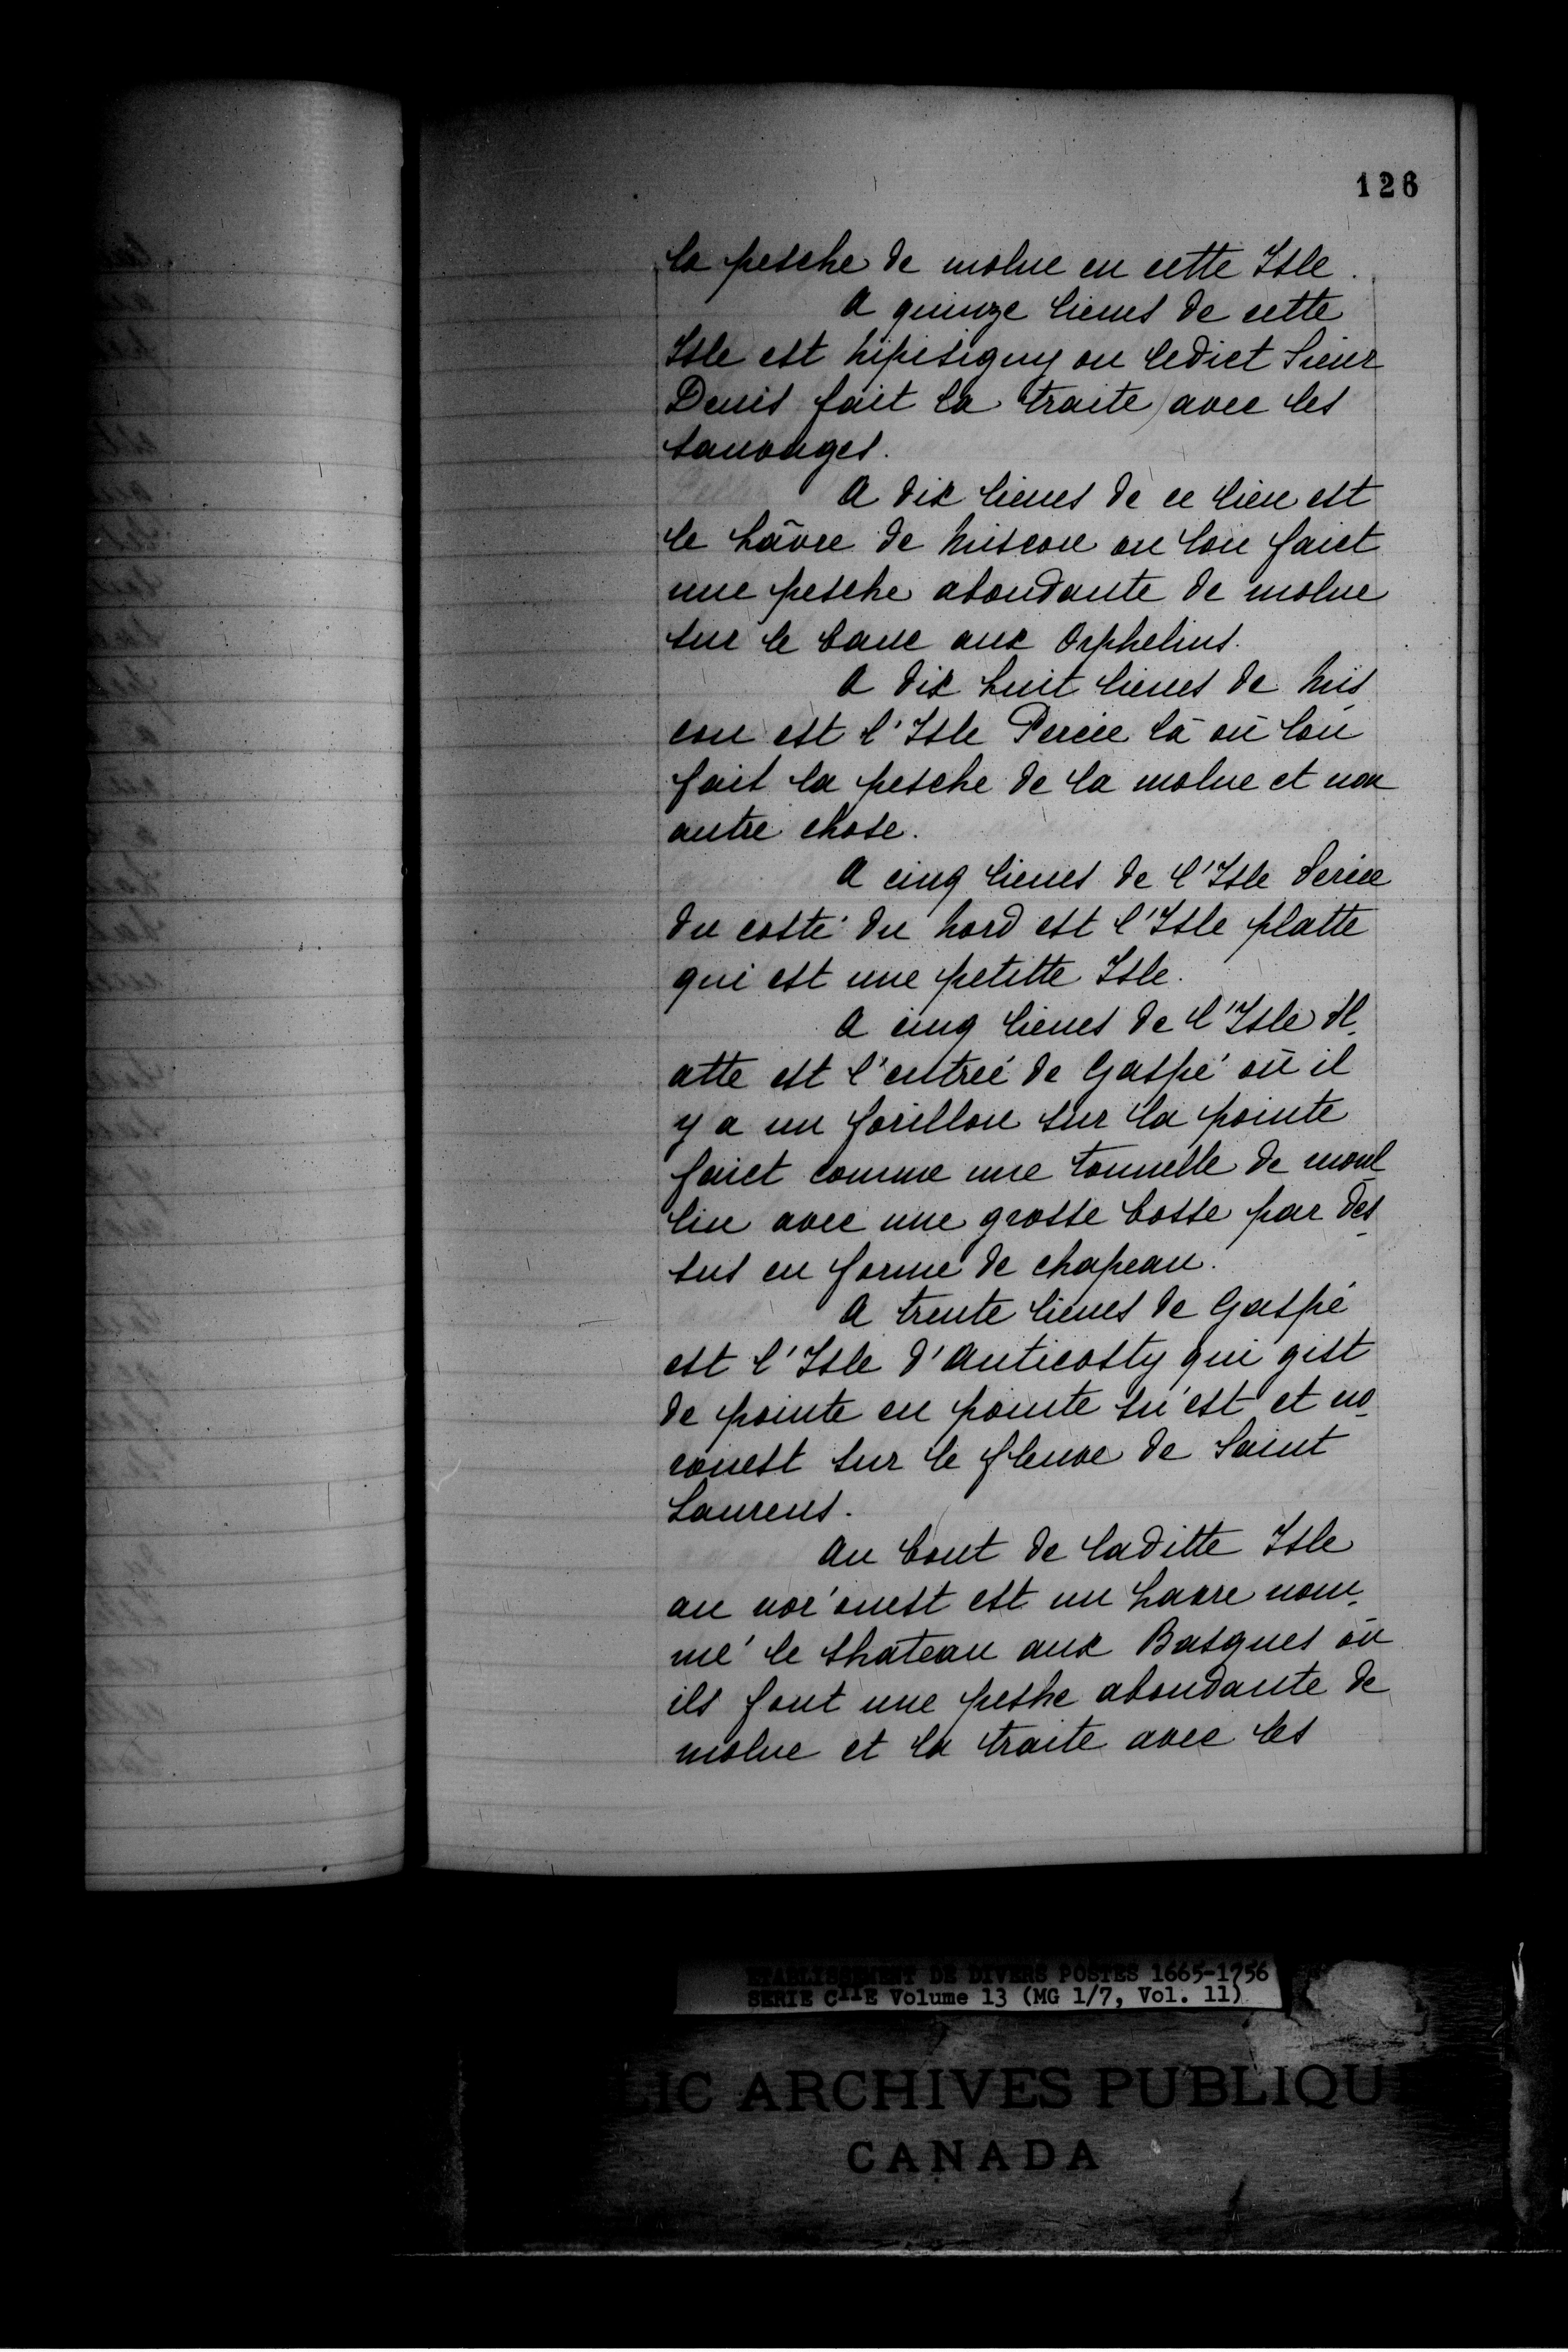 126
la pesche de molue en cette Isle.
A quinze lieues de cette
Isle est Nipisiguy ou ledict Sieur
Denis fait la traite avec les
sauvages.
A dix lieues de ce lieu est
le hâvre de Miscou ou lon faict
une pesche abondante de molue
sur le banc aux Orphelins.
A dix huit lieues de Mis
cou est l'Isle Percée là où lon
fait la pesche de la molue et non
autre chose.
A cinq lieues de l'Isle Percée
du costé du Nord est l'Isle platte
qui est une petitte Isle.
A cinq lieues de l'Isle Pl-
atte est l'entrée de Gaspé où il
y a un forillon sur la pointe
faict comme une tonnelle de moul
lin avec une grosse bosse par des-
sus en forme de chapeau.
A trente lieues de Gaspé
est l'Isle d'Anticosty qui gist
de pointe en pointe su'est et no-
rouest sur le fleuve de Saint
Laurens.
Au bout de laditte Isle
au nor'ouest est un havre nom-
mé le chateau aux Basques où
ils font une peshe abondante de
molue et la traite avec les
ETABLISSEMENT DE DIVERS POSTES 1665-1756
SERIE C11E Volume 13 (MG 1/7, Vol. 11)
LIC ARCHIVES PUBLIQU
CANADA